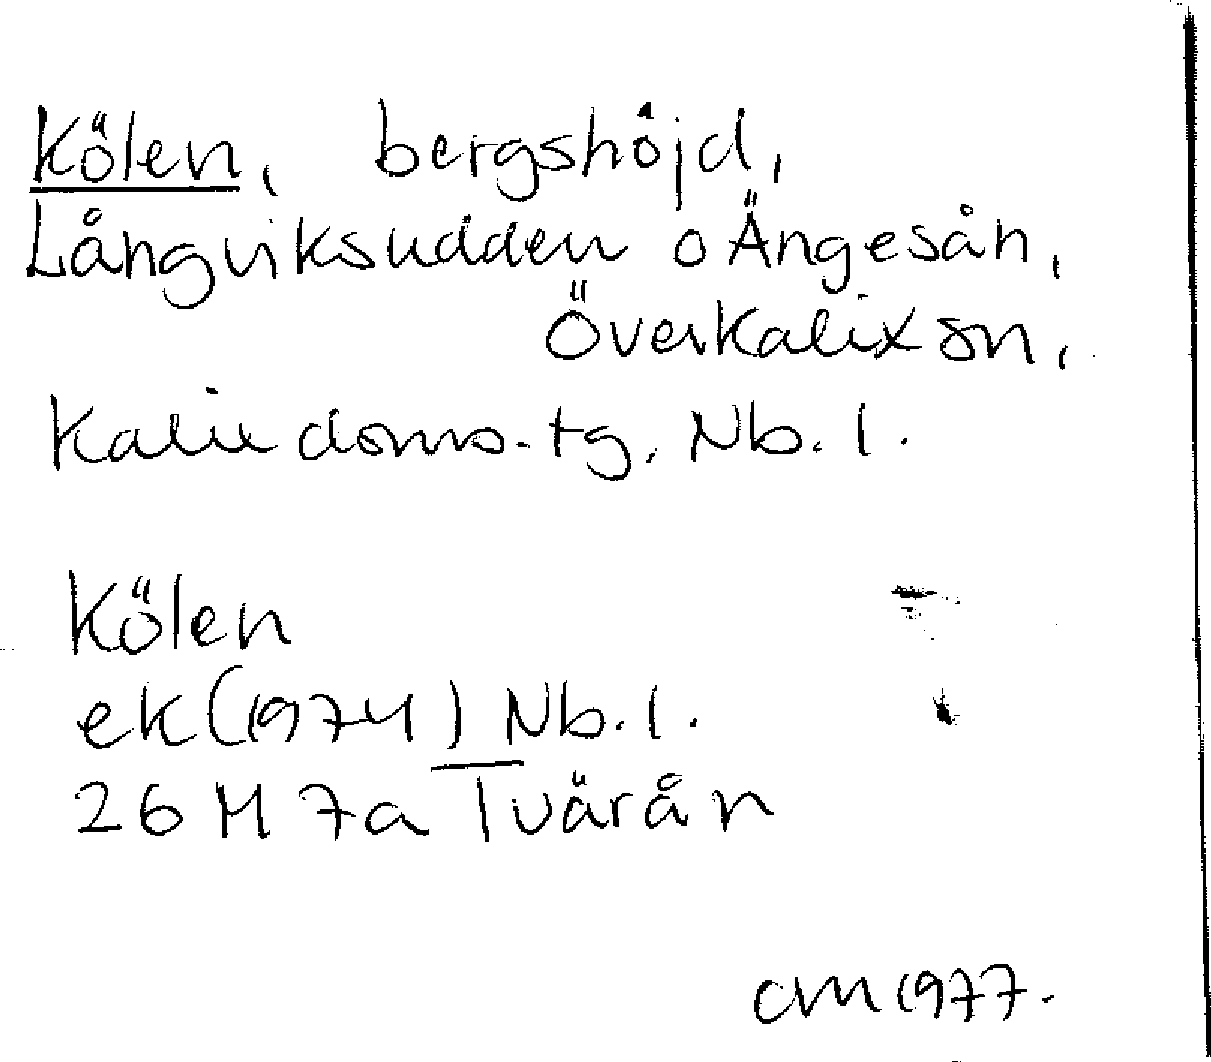 Kölen, bergshöjd,
Långviksudden o Ängesån,
Överkalix sn,
Kalix doms.tg. Nb.l.
Kölen
ek(1974) Nb.l.
26 M 7a Tvärån
CM 1977.